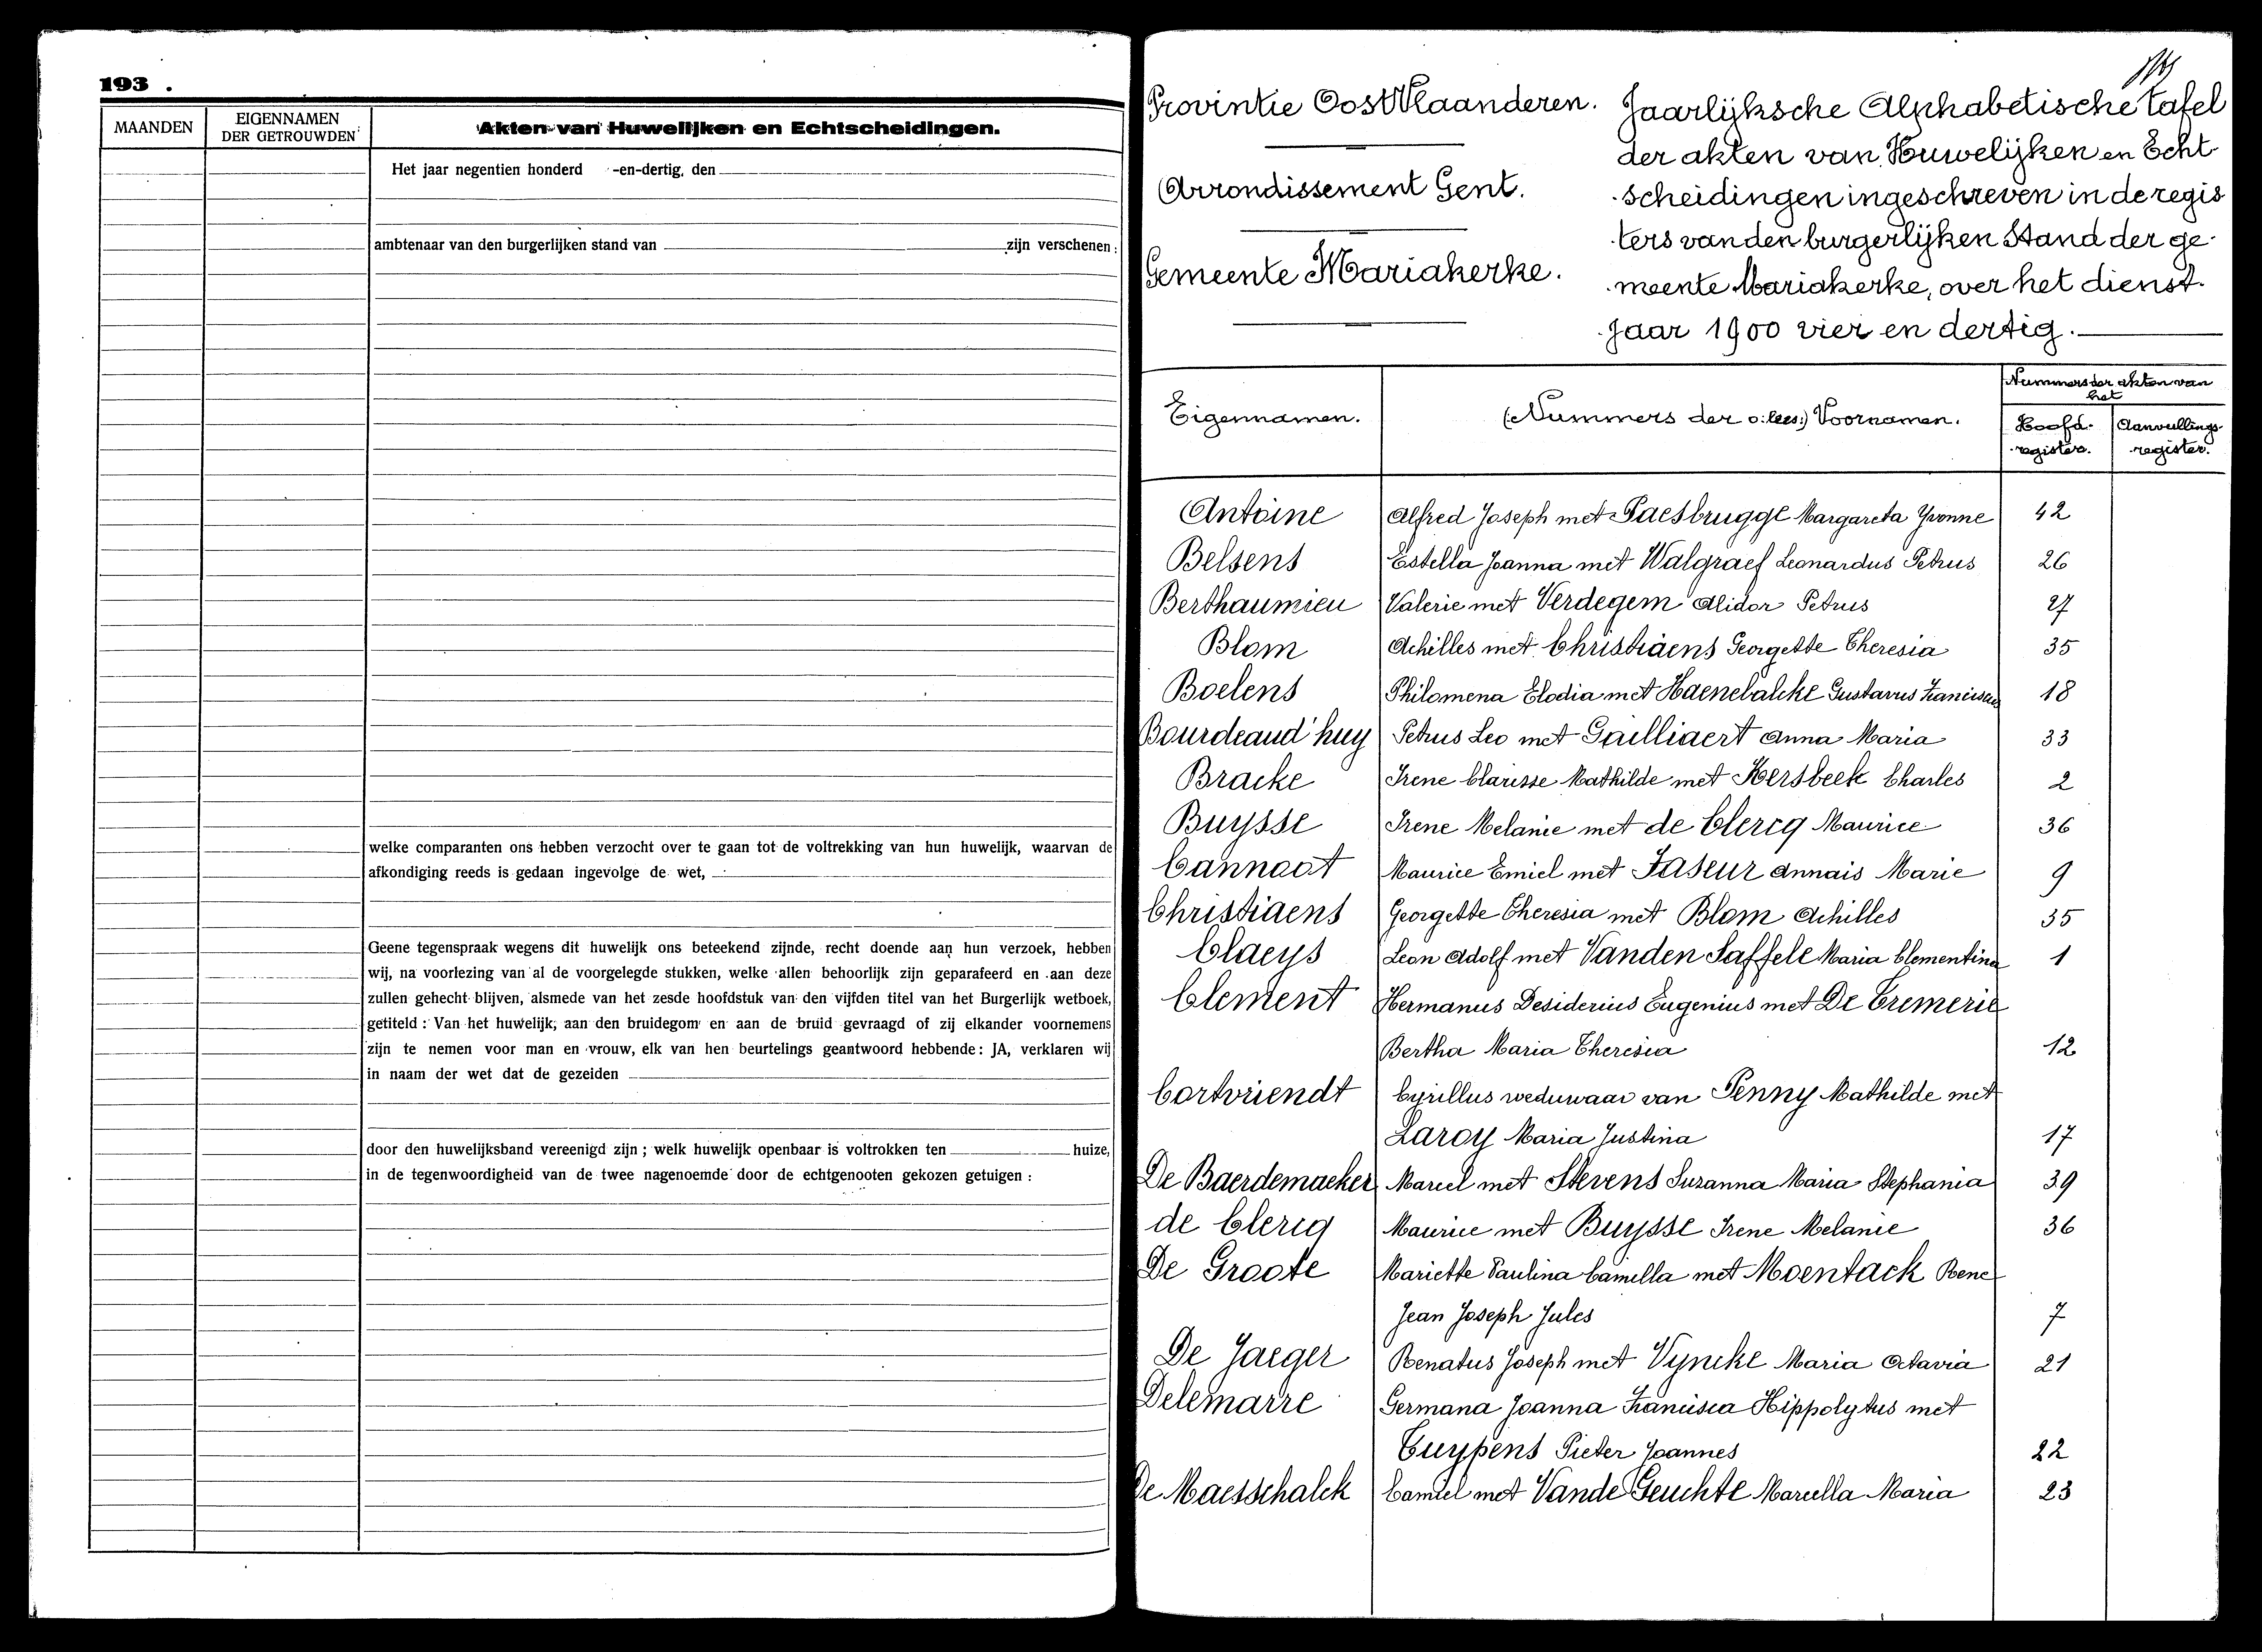 193 .
MAANDEN
EIGENNAMEN
DER GETROUWDEN
Akten van Huwelijken en Echtscheidingen.
Het jaar negentien honderd -en-dertig, den
ambtenaar van den burgerlijken stand van zijn verschenen :
welke comparanten ons hebben verzocht over te gaan tot de voltrekking van hun huwelijk, waarvan de
afkondiging reeds is gedaan ingevolge de wet,
Geene tegenspraak wegens dit huwelijk ons beteekend zijnde, recht doende aan hun verzoek, hebben
wij, na voorlezing van al de voorgelegde stukken, welke allen behoorlijk zijn geparafeerd en aan deze
zullen gehecht blijven, alsmede van het zesde hoofdstuk van den vijfden titel van het Burgerlijk wetboek,
getiteld : Van het huwelijk, aan den bruidegom en aan de bruid gevraagd of zij elkander voornemens
zijn te nemen voor man en vrouw, elk van hen beurtelings geantwoord hebbende : JA, verklaren wij
in naam der wet dat de gezeiden
door den huwelijksband vereenigd zijn ; welk huwelijk openbaar is voltrokken ten huize,
in de tegenwoordigheid van de twee nagenoemde door de echtgenooten gekozen getuigen :
Provintie Oost Vlaanderen.
Arrondissement Gent.
Gemeente Mariakerke.
Jaarlijksche Alphabetische tafel
der akten van Huwelijken en Echt
scheidingen ingeschreven in de regis
ters van den burgerlijken Stand der ge-
meente Mariakerke, over het dienst-
jaar 1900 vier en dertig.
Eigennamen.
(Nummers der o: lees:) Voornamen.
Nummers der akten van
het
Hoofd-
register.
Aanvullings-
register.
Antoine Alfred Joseph met Paesbrugge Margareta Yvonne 42
Belsens Estella Joanna met Walgraef Leonardus Petrus 26
Berthaumieu Valerie met Verdegem Alidor Petrus 27
Blom Achilles met Christiaens Georgette Theresia 35
Boelens Philomena Elodia met Haenebalcke Gustavus Franciscus 18
Bourdeaud'huy Petrus Leo met Gailliaert Anna Maria 33
Bracke Irene Clarisse Mathilde met Hersbeek Charles 2
Buysse Irene Melanie met de Clercq Maurice 36
Cannoot Maurice Emiel met Faseur Annais Marie 9
Christiaens Georgette Theresia met Blom Achilles 35
Claeys Leon Adolf met Vanden Saffele Maria Clementina 1
Clement Hermanus Desiderius Eugenius met De Cremerie
Bertha Maria Theresia 12
Cortvriendt Cyrillus weduwaar van Penny Mathilde met
Laroy Maria Justina 17
De Baerdemaeker Marcel met Stevens Suzanna Maria Stephania 39
de Clercq Maurice met Buysse Irene Melanie 36
De Groote Mariette Paulina Camilla met Moentack Rene
Jean Joseph Jules 7
De Jaeger Renatus Joseph met Vyncke Maria Octavia 21
Delemarre Germana Joanna Francisca Hippolytus met
Cuypens Pieter Joannes 22
De Maesschalck Camiel met Vande Geuchte Marcella Maria 23